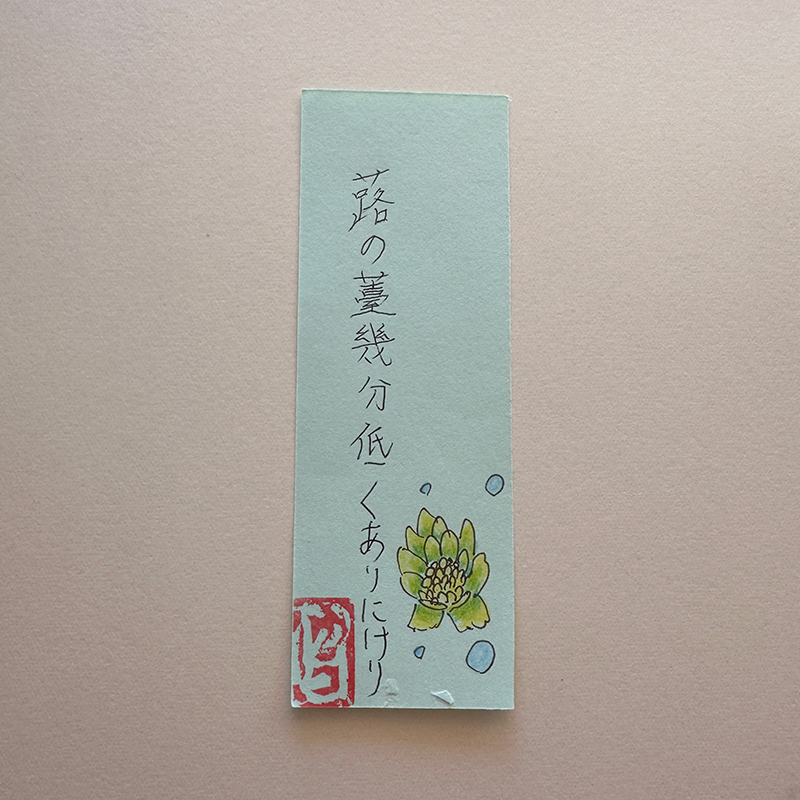 蕗の薹幾分低くありにけり